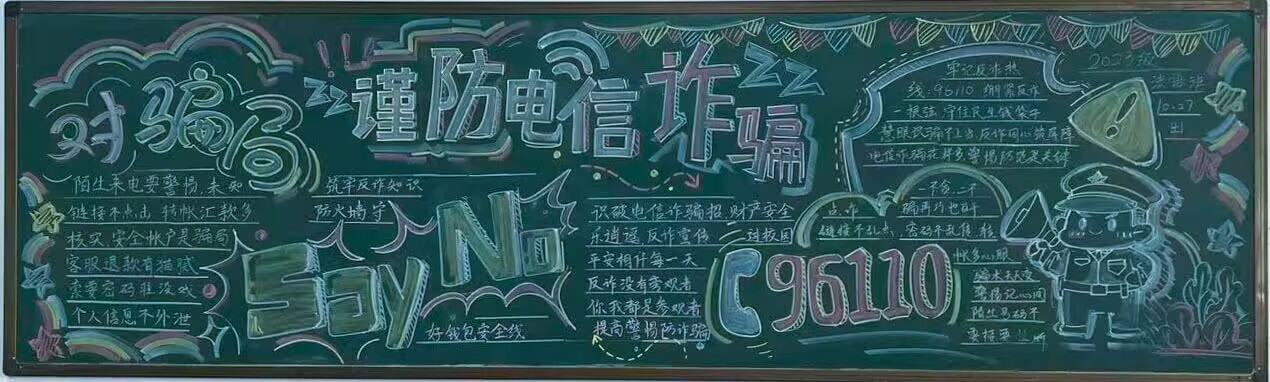 对骗局
谨防电信诈骗
陌生来电要警惕,未知
链接不点击 转帐汇款多
核实,安全帐户是骗局
客服退款有猫腻
索要密码准没戏
个人信息不外泄
筑牢反诈知识
防火墙 守
Say No
好钱包安全线
识破电信诈骗招,财产安全
乐逍遥 反诈宣传 进校园
平安相伴每一天
反诈没有旁观者
你我都是参观者
提高警惕防诈骗
96110
牢记反诈热
线:96110 绷紧反诈
一根弦,守住民生钱袋子
慧眼识骗不上当,反诈同心
电信诈骗花样多,警惕防范是关键
一不贪,二不
点,诈骗再巧也白
链接不乱点,密码不乱传 转
帐多心眼
骗术天天变
警惕记心间
陌生号码不
要接
10.27
出